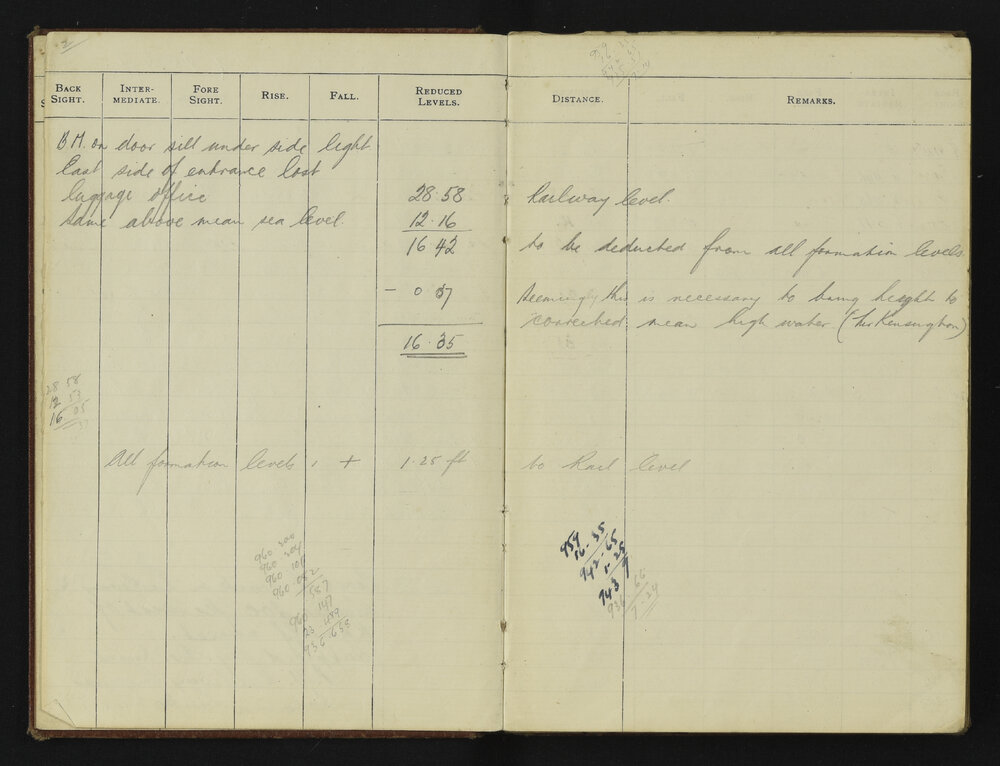 2
BACK SIGHT. INTER-MEDIATE. FORE SIGHT. RISE. FALL. REDUCED LEVELS. DISTANCE. REMARKS.
B.M. on door sill under side light
East side of entrance Lost
luggage office 28.58 Railway level.
Same above mean sea level. 12.16
16.42 to be deducted from all formation levels
- 0.07 Seemingly this is necessary to bring height to
corrected mean high water (
16.35
28 58
12 53
16 05
All formation levels + 1.25 ft to Rail level
959
16.35
942.65
1.25
943 9
936 66
7.24
960
960
960
960
587
960 147
23
936.659